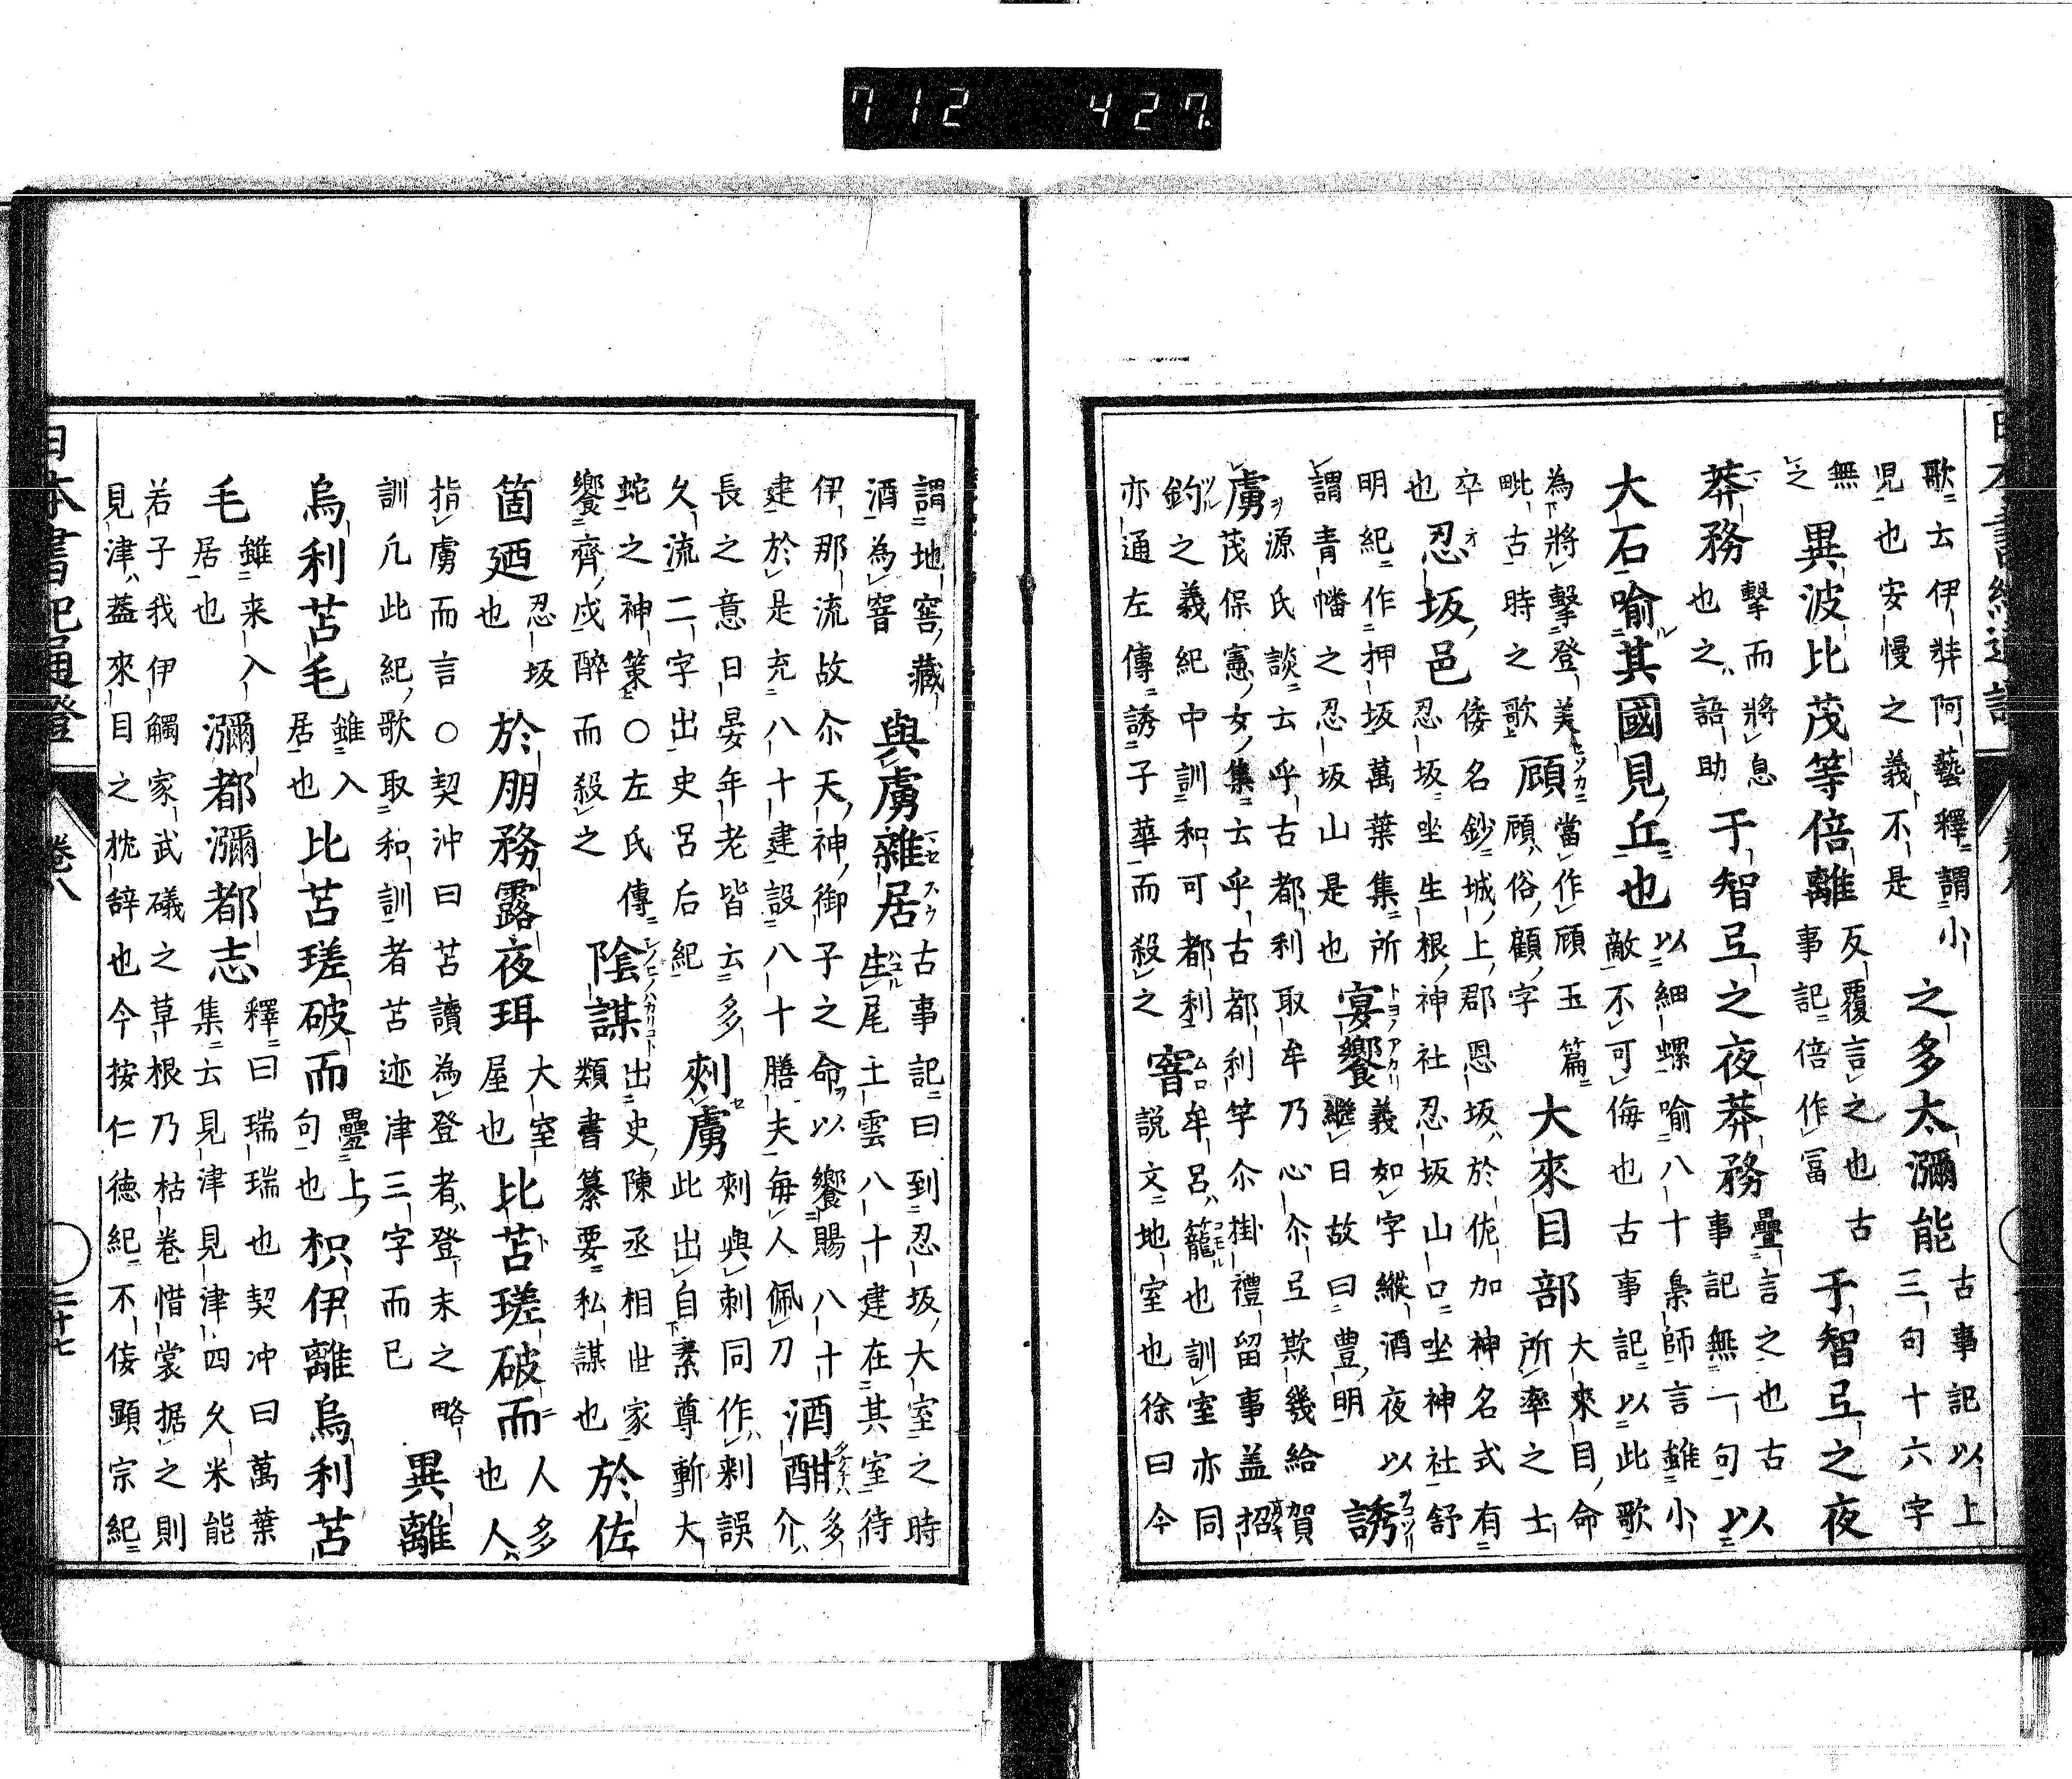 歌云伊弉阿藝釋謂小
児也安慢之義不是
之多太瀰能
古事記以上
三句十六字
無
之
異波比茂等倍離
反覆言之也古
事記倍作冨
于智弖之夜
莽務
擊而將息
也之語助
于智弖之夜莽務
疊言之也古
事記無一句
以
大石喻其國見丘也
以細螺喻八十梟師言雖小
敵不可侮也古事記以此歌
為將擊登美
毗古時之歌
頋
當作頋玉篇
頋俗顧字
大來目部
大來目命
所率之士
卒
也
忍坂邑
倭名鈔城上郡恩坂於佐加神名式有
忍坂坐生根神社忍坂山口坐神社舒
明紀作押坂萬葉集所
謂青幡之忍坂山是也
宴饗
義如字縱酒夜以
繼日故曰豐明
誘
虜
源氏談云乎古都利取牟乃心尒弖欺幾給賀
茂保憲女集云乎古都利竿尒掛禮留事盖招
釣之義紀中訓和可都利
亦通左傳誘子華而殺之
窨
牟呂籠也訓室亦同
説文地室也徐曰今
謂地窖藏
酒為窨
與虜雜居
古事記曰到忍坂大室之時
生尾土雲八十建在其室待
伊那流故尒天神御子之命以饗賜八十
建於是充八十建設八十膳夫每人佩刀
酒酣
多
介
長之意日晏年老皆云多
久流二字出史呂后紀
刾虜
刾與刺同作剌誤
此出自素尊斬大
蛇之神策○左氏傳
饗齊戍醉而殺之
陰謀
出史陳丞相世家
類書纂要私謀也
於佐
箇廼
忍坂
也
於朋務露夜珥
大室
屋也
比苫瑳破而
人多
也人
指虜而言○契沖曰苫讀為登者登未之略
訓凡此紀歌取和訓者苫迹津三字而已
異離
烏利苫毛
雖入
居也
比苫瑳破而
疊上
句也
枳伊離烏利苫
毛
雖来入
居也
瀰都瀰都志
釋曰瑞瑞也契冲曰萬葉
集云見津見津四久米能
若子我伊觸家武礒之草根乃枯卷惜裳据之則
見津蓋來目之枕辭也今按仁徳紀不倭顕宗紀
日本書紀通證
卷八
二十七
712 427